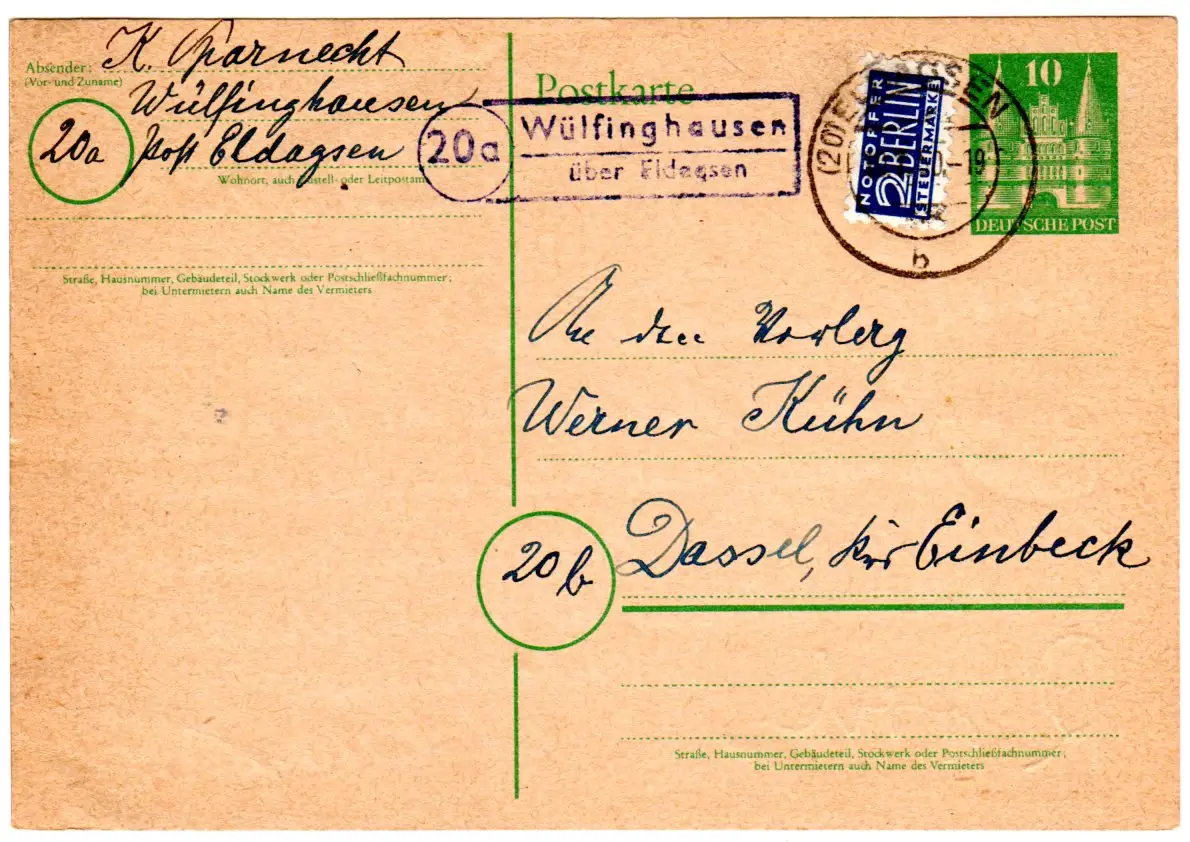 Absender: K. Sparnecht
(Vor- und Zuname)
Wülfinghausen
20a
Post Eldagsen
Wohnort, auch Zustell- oder Leitpostamt
Straße, Hausnummer, Gebäudeteil, Stockwerk oder Postschließfachnummer;
bei Untermietern auch Name des Vermieters
Postkarte
20a
Wülfinghausen
über Eldagsen
NOTOPFER
2 BERLIN
STEUERMARKE
(20) ELDAGSEN
-19
b
10
DEUTSCHE POST
An den
Werner Kühn
20b
Dassel, Krs Einbeck
Straße, Hausnummer, Gebäudeteil, Stockwerk oder Postschließfachnummer;
bei Untermietern auch Name des Vermieters